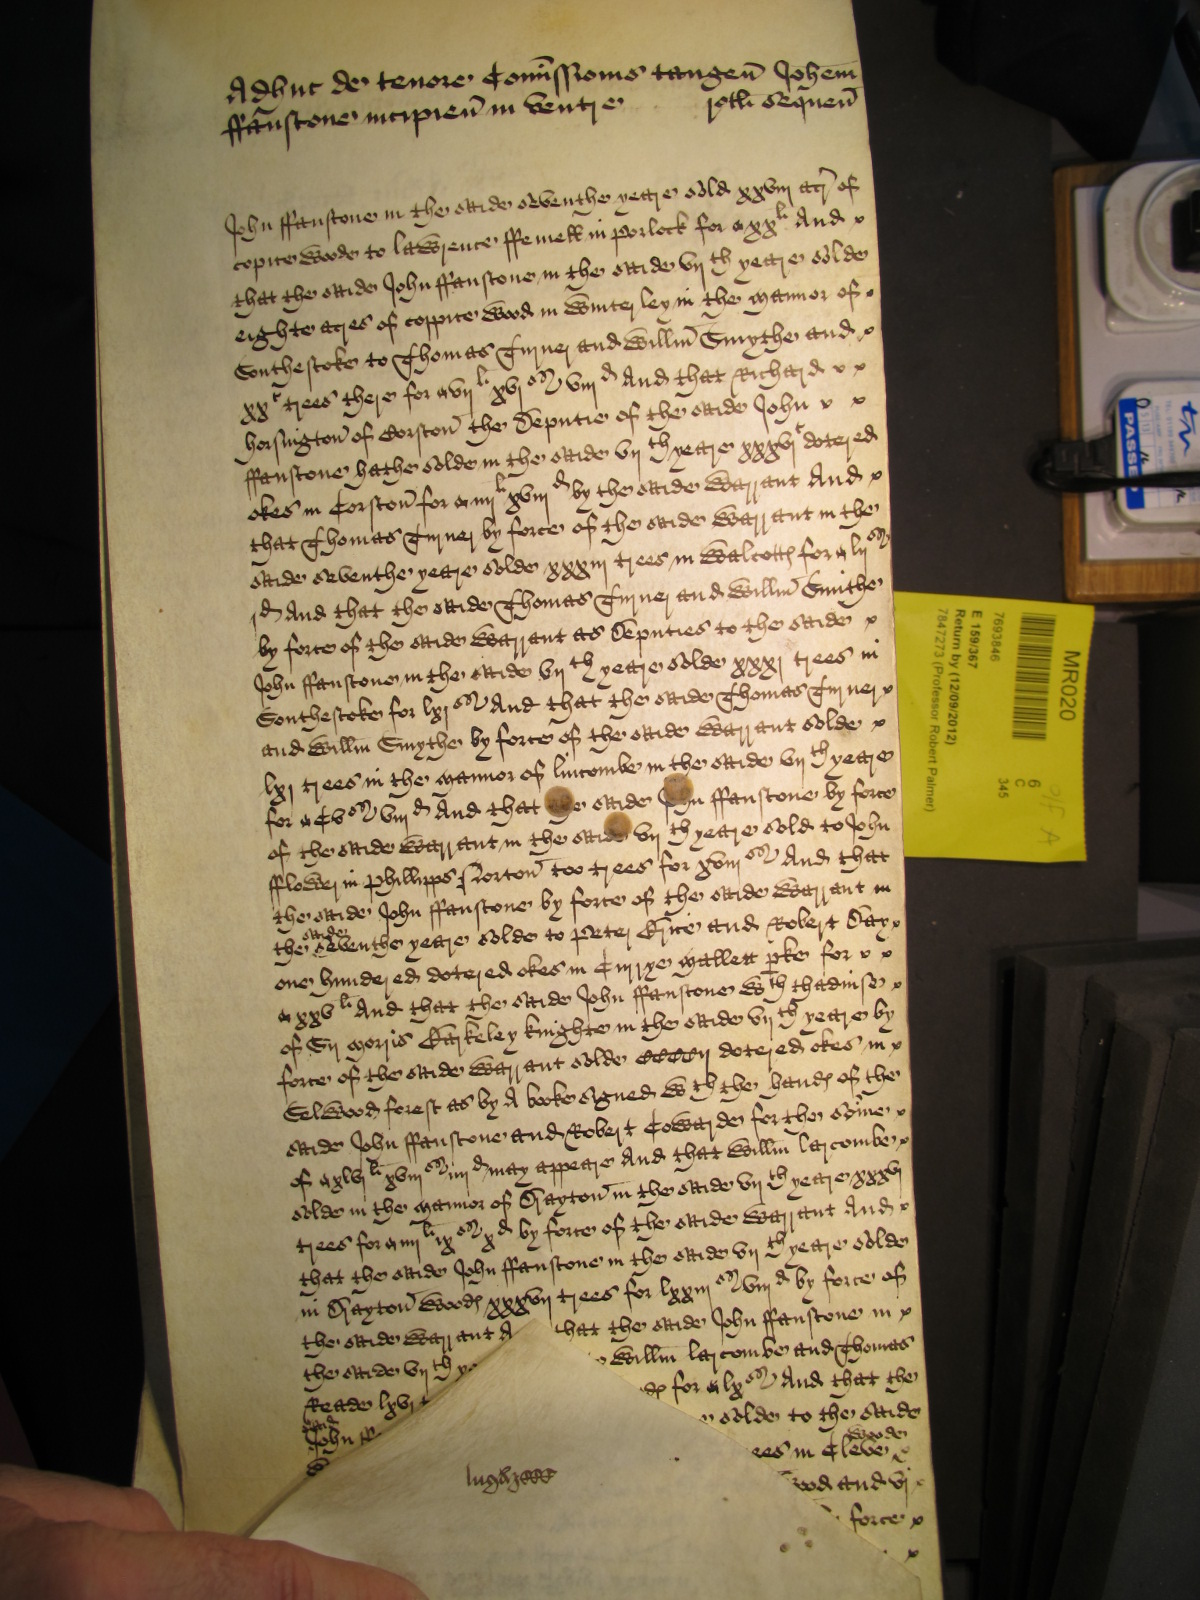 Adhuc de tenore Comissionis tangen Johem
ffaustone incipien in ventre rotli sequen
John ffaustone in the saide seventhe yeare sold xxviij acr of
copice woode to lawrence ffemell in porlock for xxli And
that the saide John ffaustone in the saide vijth yeare solde
eighte acres of coppice wood in winterley in the mannor of
Southestoke to Thomas Turner and willm Smythe and
xxti trees there for vijli xvjs viijd And that Richard
horsington of Corston the Deputie of the saide John
ffaustone hathe solde in the saide vijth yeare xxxvjti dotered
okes in Corston for iiijli xviijd by the saide warrant And
that Thomas Turner by force of the saide warrant in the
saide seventhe yeare solde xxxiij trees in walcott for lijs
jd And that the saide Thomas Turner and willm Smithe
by force of the saide warrant as Deputies to the saide
John ffaustone in the saide vijth yeare solde xxxj trees in
Southestoke for lxjs And that the saide Thomas Turner
and willm Smythe by force of the saide warrant solde
lxj trees in the mannor of lincombe in the saide vijth yeare
for Cvs viijd And that the saide John ffaustone by force
of the saide warrant in the saide vijth yeare sold to John
fflower in phillipps Norton too trees for xviijs And that
the saide John ffaustone by force of the saide warrant in
the saide seventhe yeare solde to peter and Robert Day
one hundered dotered okes in Currye mallett pke for
xxvli And that the saide John ffaustone wth thadvise
of Sir morris Barkeley knighte in the saide vijth yeare by
force of the saide warrant solde CCCCij dotered okes in
Selwood forest as by A booke signed wth the hands of the
saide John ffaustone and Robert Cowarde for the some
of xlvjli xviijs iiijd may appeare And that willm larcombe
solde in the mannor of Dayton in the saide vijth yeare xxxvj
trees for iiijli ixs xd by force of the saide warrant And
that the saide John ffaustone in the saide vijth yeare solde
in Dayton woods xxxvij trees for lxxiijs viijd by force of
the saide warrant A hat the saide John ffaustone in
the saide vijth ye willm larcombe and Thomas
Reade lxvj for lxs And that the
said John solde to the saide
ees in Cleve woode
ood and vj
force
MR020
7693846
E 159/367
Return by (12/09/2012)
7847273 (Professor Robert Palmer)
6
C
345
PASSE